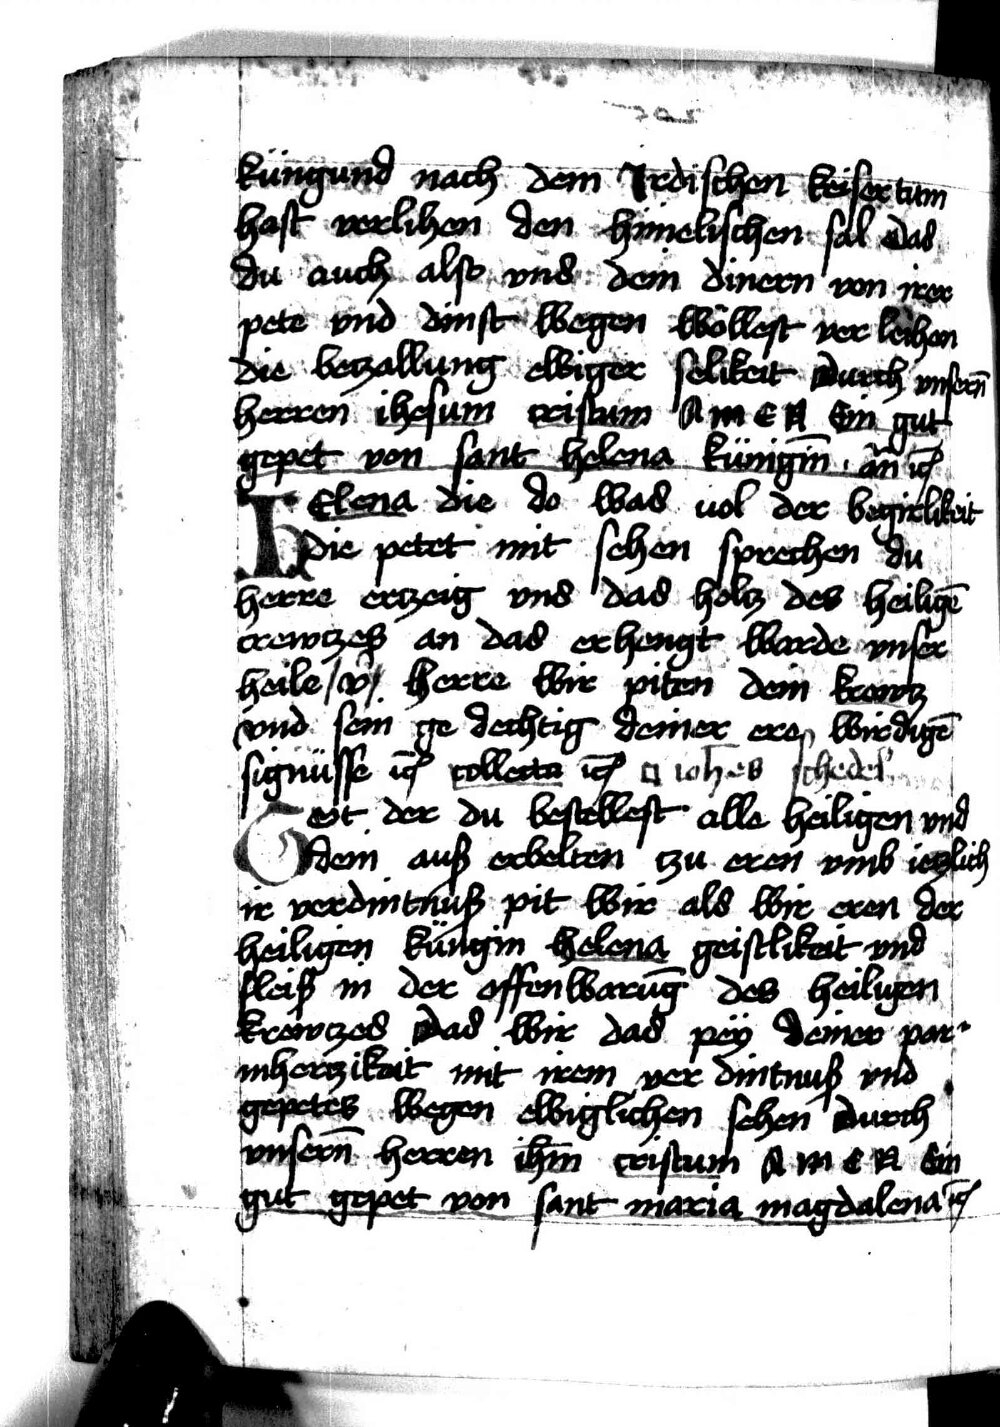 küngund nach dem Irdischen keisertum
hast verlihen den himelischen sal Das
du auch also vns dein dinern von irer
pete vnd dinst wegen wöllest ver leihen
die betzallung ewiger selikeit Durch vnsern̄
herren ihesum cristum A M E N Ein gut
gepet von sant helena künigin̄ · an̄ ic̄
HElena die do was vol der begirlikeit
die petet mit sehen sprechen du
herre ertzeig vns das holtz des heiligē
crewtzes an das erhengt warde vnser
heile /v̄/ herre wir piten dein krewtz
vnd sein ge dechtig deiner ere wirdigē
signüsse ic̄ collecta ic̄ joh̄es schedel
Got der du bestellest alle heiligen vnd
dein auß erbelten tzu eren vmb ietzlich
ir verdintnuß pit wir als wir eren der
heiligen küngin helena geistlikeit vnd
fleiß in der offenwarūg des heiligen
krewtzes Das wir das pey deiner par-
mhertzikait mit irem ver dintnuß vnd
gepetes wegen ewiglichen sehen Durch
vnsern̄ herren ih̄m cristum A M E N Ein
gut gepet von sant maria magdalena ic̄